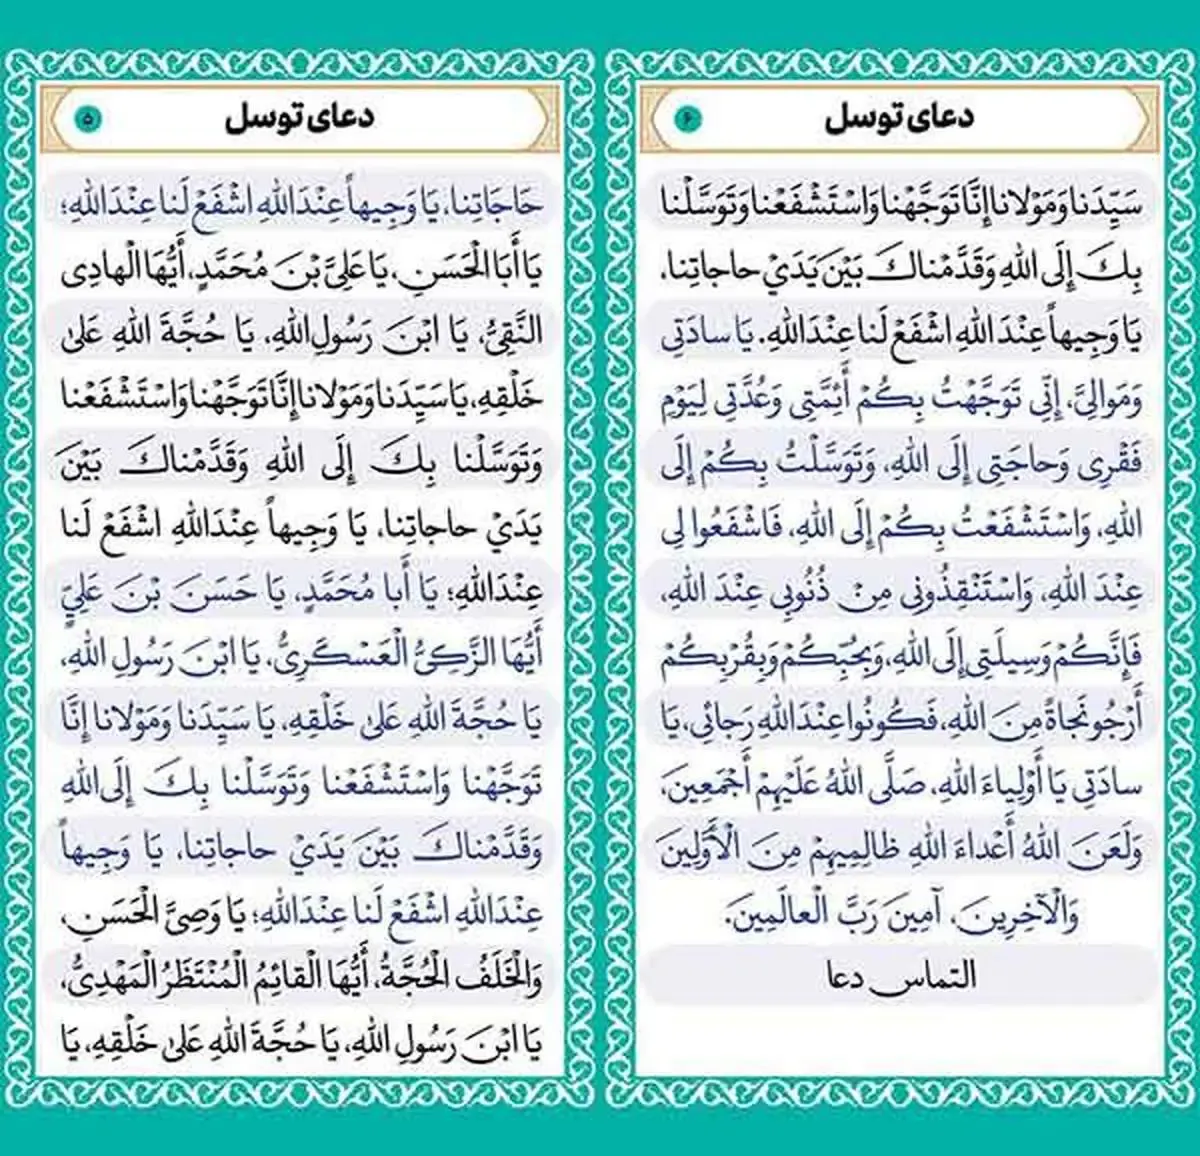 دعای توسل
۵
حَاجَاتِنا، يَا وَجِيهاً عِنْدَاللهِ اشْفَعْ لَنا عِنْدَاللهِ؛
يَا أَبَا الْحَسَنِ، يَا عَلِىَّ بْنَ مُحَمَّدٍ، أَيُّهَا الْهادِى
النَّقِىُّ، يَا ابْنَ رَسُولِ اللهِ، يَا حُجَّةَ اللهِ عَلىٰ
خَلْقِهِ، يَا سَيِّدَنا وَمَوْلانا إِنَّا تَوَجَّهْنا وَاسْتَشْفَعْنا
وَتَوَسَّلْنا بِكَ إِلَى اللهِ وَقَدَّمْناكَ بَيْنَ
يَدَيْ حاجاتِنا، يَا وَجِيهاً عِنْدَاللهِ اشْفَعْ لَنا
عِنْدَاللهِ؛ يَا أَبا مُحَمَّدٍ، يَا حَسَنَ بْنَ عَلِيٍّ
أَيُّهَا الزَّكِىُّ الْعَسْكَرِىُّ، يَا ابْنَ رَسُولِ اللهِ،
يَا حُجَّةَ اللهِ عَلىٰ خَلْقِهِ، يَا سَيِّدَنا وَمَوْلانا إِنَّا
تَوَجَّهْنا وَاسْتَشْفَعْنا وَتَوَسَّلْنا بِكَ إِلَى اللهِ
وَقَدَّمْناكَ بَيْنَ يَدَيْ حاجاتِنا، يَا وَجِيهاً
عِنْدَاللهِ اشْفَعْ لَنا عِنْدَاللهِ؛ يَا وَصِىَّ الْحَسَنِ،
وَالْخَلَفُ الْحُجَّةُ، أَيُّهَا الْقائِمُ الْمُنْتَظَرُ الْمَهْدِىُّ،
يَا ابْنَ رَسُولِ اللهِ، يَا حُجَّةَ اللهِ عَلىٰ خَلْقِهِ، يَا
دعای توسل
۶
سَيِّدَنا وَمَوْلانا إِنَّا تَوَجَّهْنا وَاسْتَشْفَعْنا وَتَوَسَّلْنا
بِكَ إِلَى اللهِ وَقَدَّمْناكَ بَيْنَ يَدَيْ حاجاتِنا،
يَا وَجِيهاً عِنْدَ اللهِ اشْفَعْ لَنا عِنْدَاللهِ. يَا سادَتِي
وَمَوالِىَّ، إِنِّي تَوَجَّهْتُ بِكُمْ أَئِمَّتِي وَعُدَّتِي لِيَوْمِ
فَقْرِى وَحاجَتِى إِلَى اللهِ، وَتَوَسَّلْتُ بِكُمْ إِلَى
اللهِ، وَاسْتَشْفَعْتُ بِكُمْ إِلَى اللهِ، فَاشْفَعُوا لِى
عِنْدَ اللهِ، وَاسْتَنْقِذُونِى مِنْ ذُنُوبِى عِنْدَ اللهِ،
فَإِنَّكُمْ وَسِيلَتِي إِلَى اللهِ، وَبِحُبِّكُمْ وَبِقُرْبِكُمْ
أَرْجُو نَجاةً مِنَ اللهِ، فَكُونُوا عِنْدَ اللهِ رَجائِى، يَا
سادَتِي يَا أَوْلِياءَ اللهِ، صَلَّى اللهُ عَلَيْهِمْ أَجْمَعِينَ،
وَلَعَنَ اللهُ أَعْداءَ اللهِ ظالِمِيهِمْ مِنَ الْأَوَّلِينَ
وَالْآخِرِينَ، آمِينَ رَبَّ الْعالَمِينَ.
التماس دعا